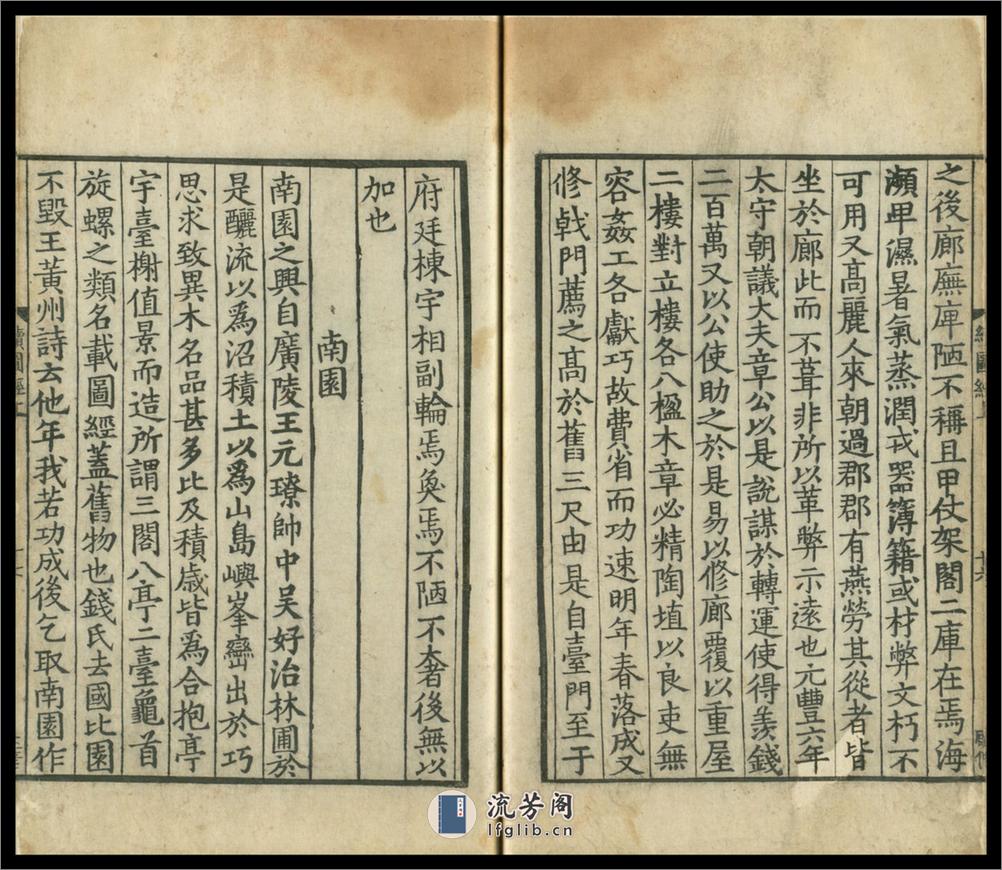 之後廊廡庫陋不稱且甲仗架閣二庫在焉海
瀕卑濕暑氣蒸潤戎器簿籍或材弊文朽不
可用又高麗人來朝過郡郡有燕勞其從者皆
坐於廊此而不葺非所以革弊示遠也元豐六年
太守朝議大夫章公以是說謀於轉運使得羨錢
二百萬又以公使助之於是易以修廊覆以重屋
二樓對立樓各八楹木章必精陶埴以良吏無
容姦工各獻巧故費省而功速明年春落成又
修戟門薦之高於舊三尺由是自臺門至于
十六
府廷棟宇相副輪焉奐焉不陋不奢後無以
加也
南園
南園之興自廣陵王元璙帥中吳好治林圃於
是釃流以為沼積土以為山島嶼峯巒出於巧
思求致異木名品甚多比及積歲皆為合抱亭
宇臺榭值景而造所謂三閣八亭二臺龜首
旋螺之類名載圖經蓋舊物也錢氏去國比園
不毀王黃州詩云他年我若功成後乞取南園作
流芳阁
lfglib.cn